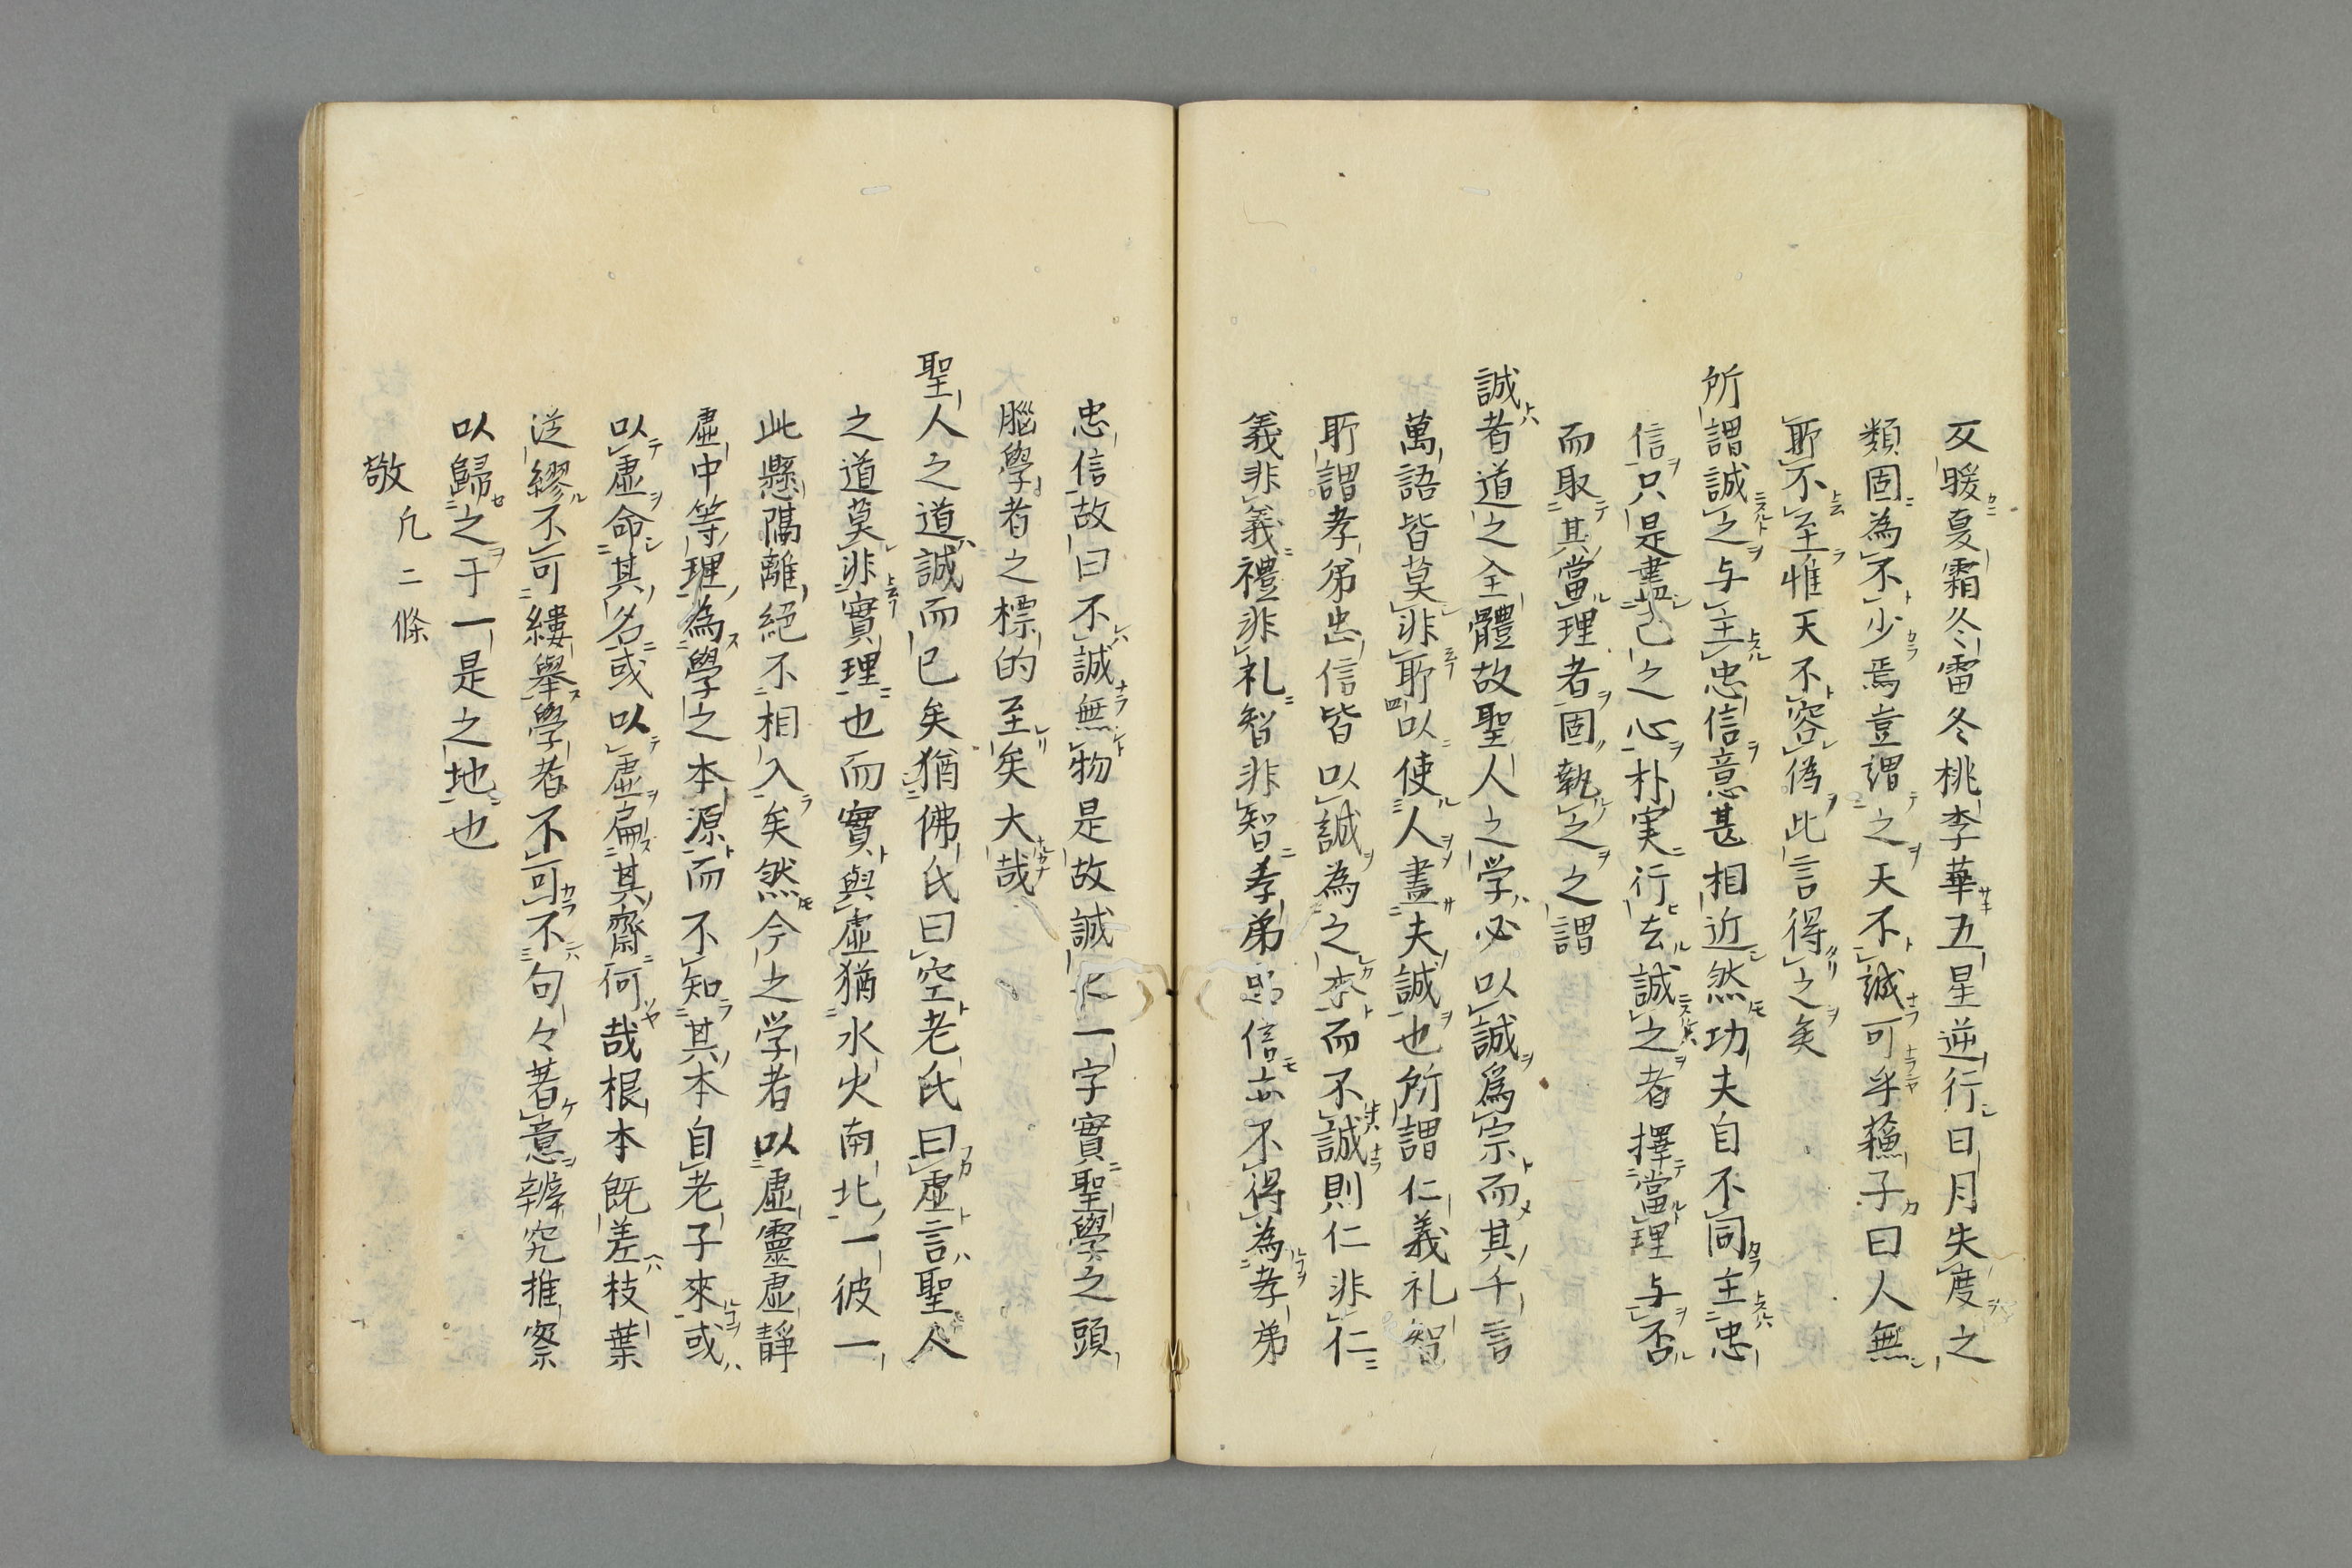 反暖夏霜冬雷冬桃李華五星逆行日月失度之
類固為不少焉豈謂之天不誠可乎蘓子曰人無
所不至惟天不容偽此言得之矣
所謂誠之与主忠信意甚相近然功夫自不同主忠
信只是盡己之心朴実行去誠之者擇當理与否
而取其當理者固執之之謂
誠者道之全體故聖人之学必以誠為宗而其千言
萬語皆莫非所以使人盡夫誠也所謂仁義礼智
所謂孝弟忠信皆以誠為之本而不誠則仁非仁
義非義禮非礼智非智孝弟忠信亦不得為孝弟
忠信故曰不誠無物是故誠之一字實聖學之頭
腦學者之標的至矣大哉
聖人之道誠而已矣猶佛氏曰空老氏曰虛言聖人
之道莫非實理也而實與虛猶水火南北一彼一
此懸隔離絕不相入矣然今之学者以虛靈虛靜
虛中等理為學之本源而不知其本自老子來或
以虛命其名或以虛扁其齋何哉根本既差枝葉
從繆不可縷舉學者不可不句々著意辨究推察
以歸之于一是之地也
敬 凡二條